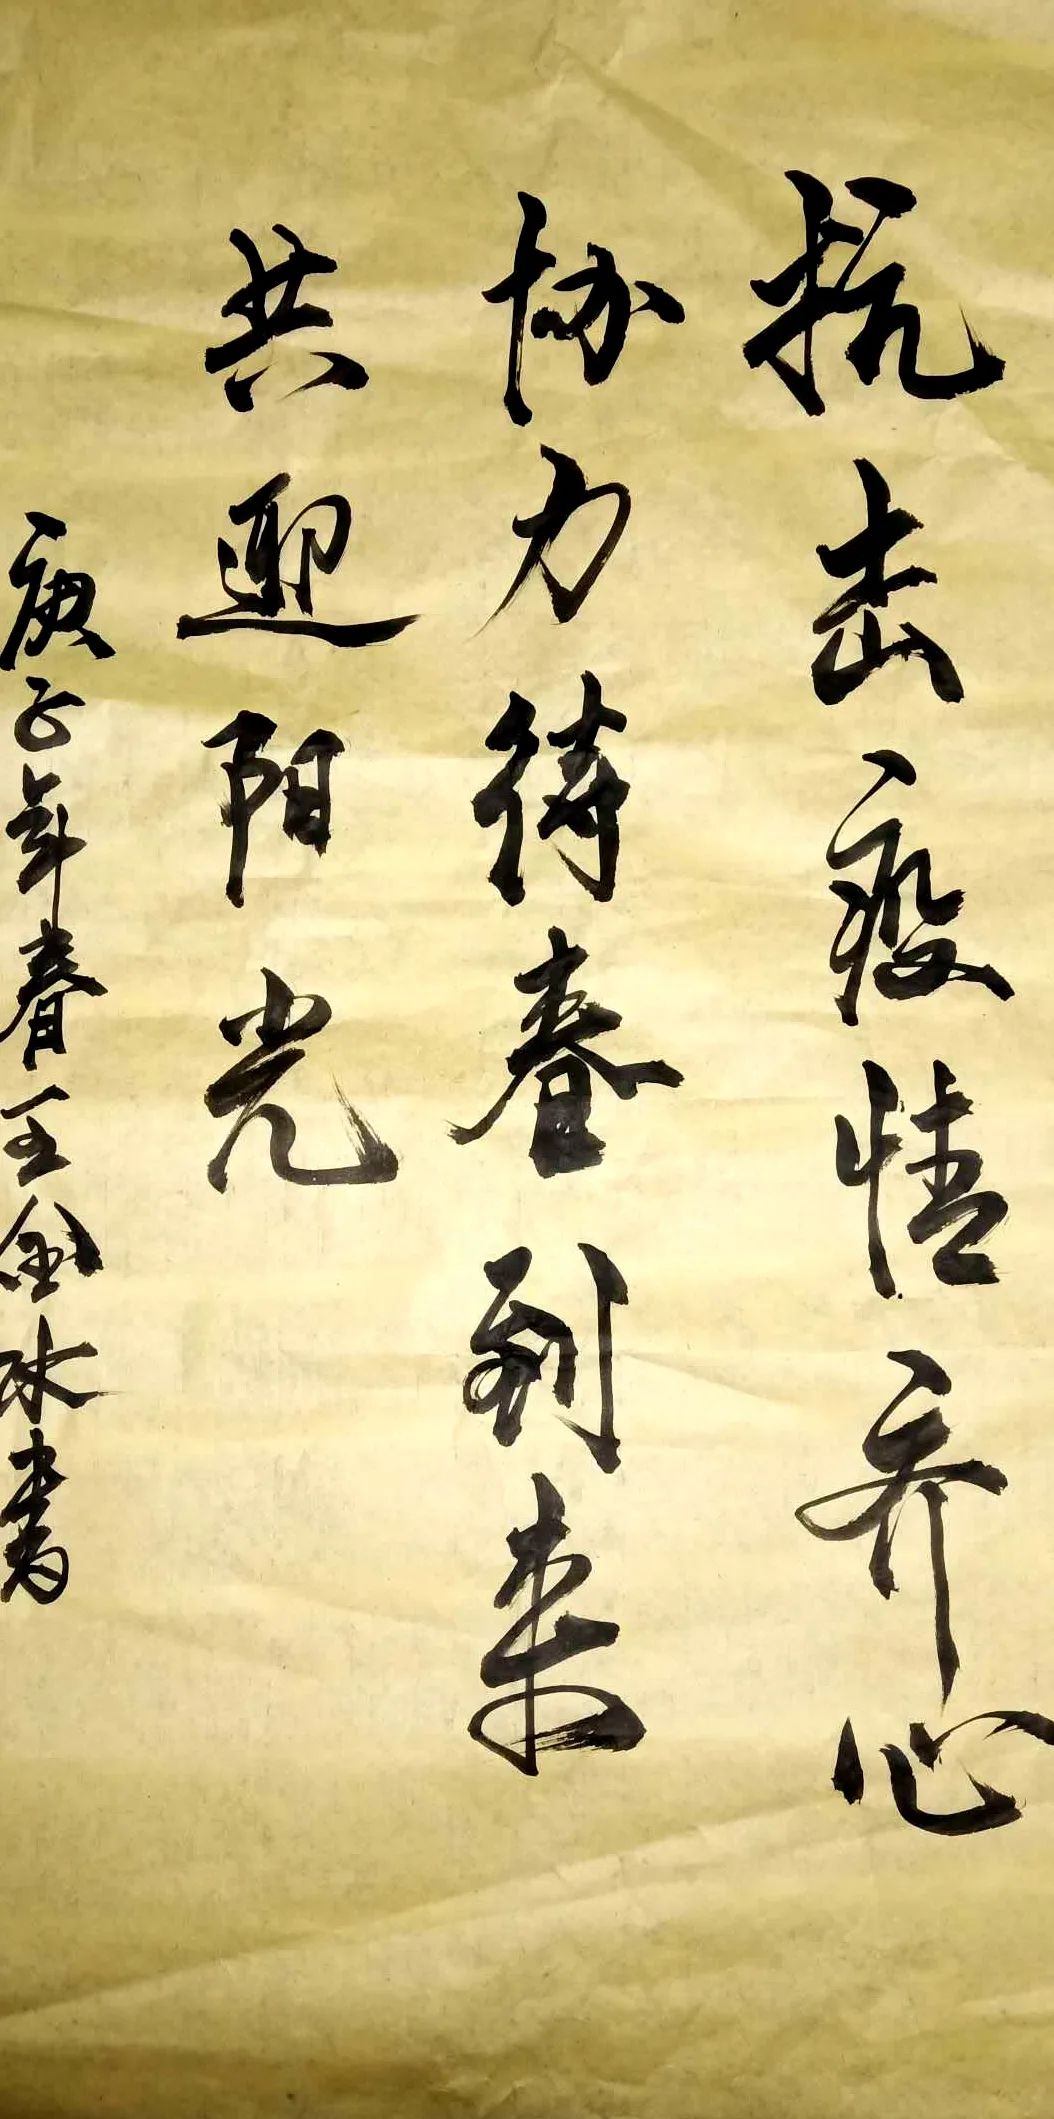 抗击疫情齐心
协力待春到来
共迎阳光
庚子年春王金水书